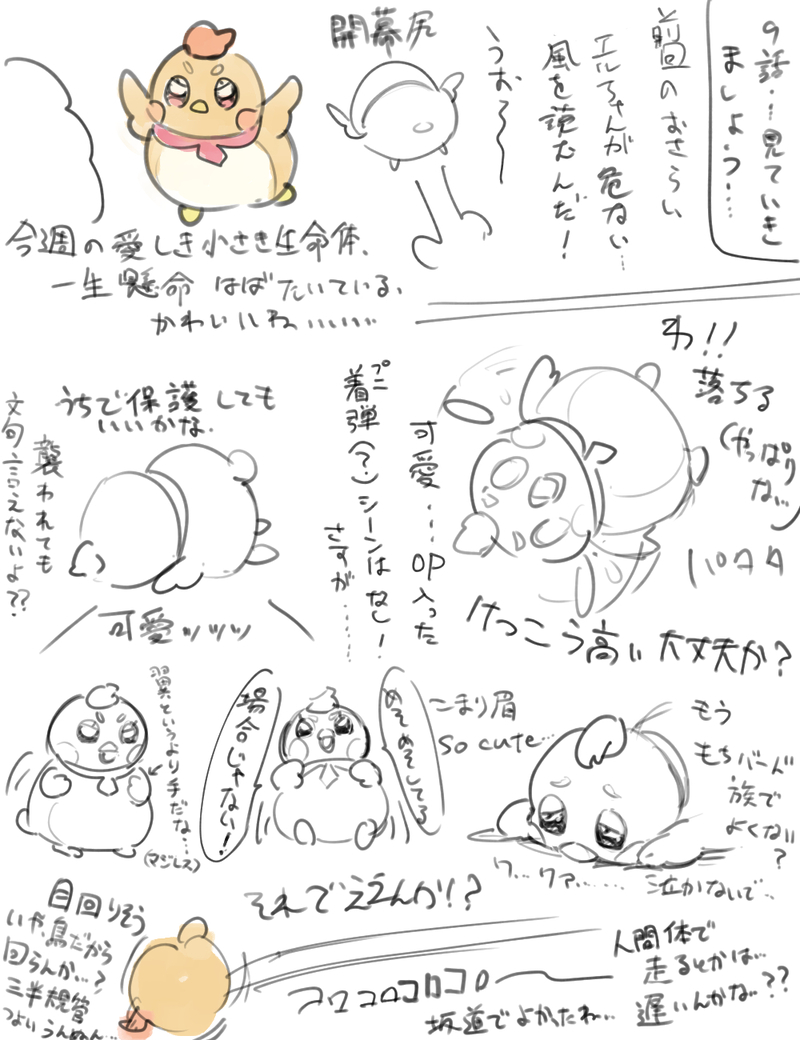 9話…見ていき
ましょう…
前回のおさらい
エルちゃんが危ない…
風を読むんだ!
うお〜〜
開幕尻
今週の愛しき小さき生命体、
一生懸命はばたいている、
かわいいね……
わ!!
落ちる
(やっぱりな…)
パタタ
けっこう高い大丈夫か?
可愛…OP入った
プニ
着弾(?)シーンはなし!
さすが……
うちで保護しても
いいかな。
襲われても
文句言えないよ??
可愛ッッッ
もう
もちバード
族で
よくない
?
ワ…ワァ……
泣かないで…
こまり眉
so cute…
めそめそしてる
場合じゃない!
翼というより手だな…
(マジレス)
それでええんか!?
人間体で
走るとかは…
遅いんかな…??
コロコロコロコロ
坂道でよかったね…
目回りそう
いや、鳥だから
回らんか…?
三半規管
つよいうんぬん…